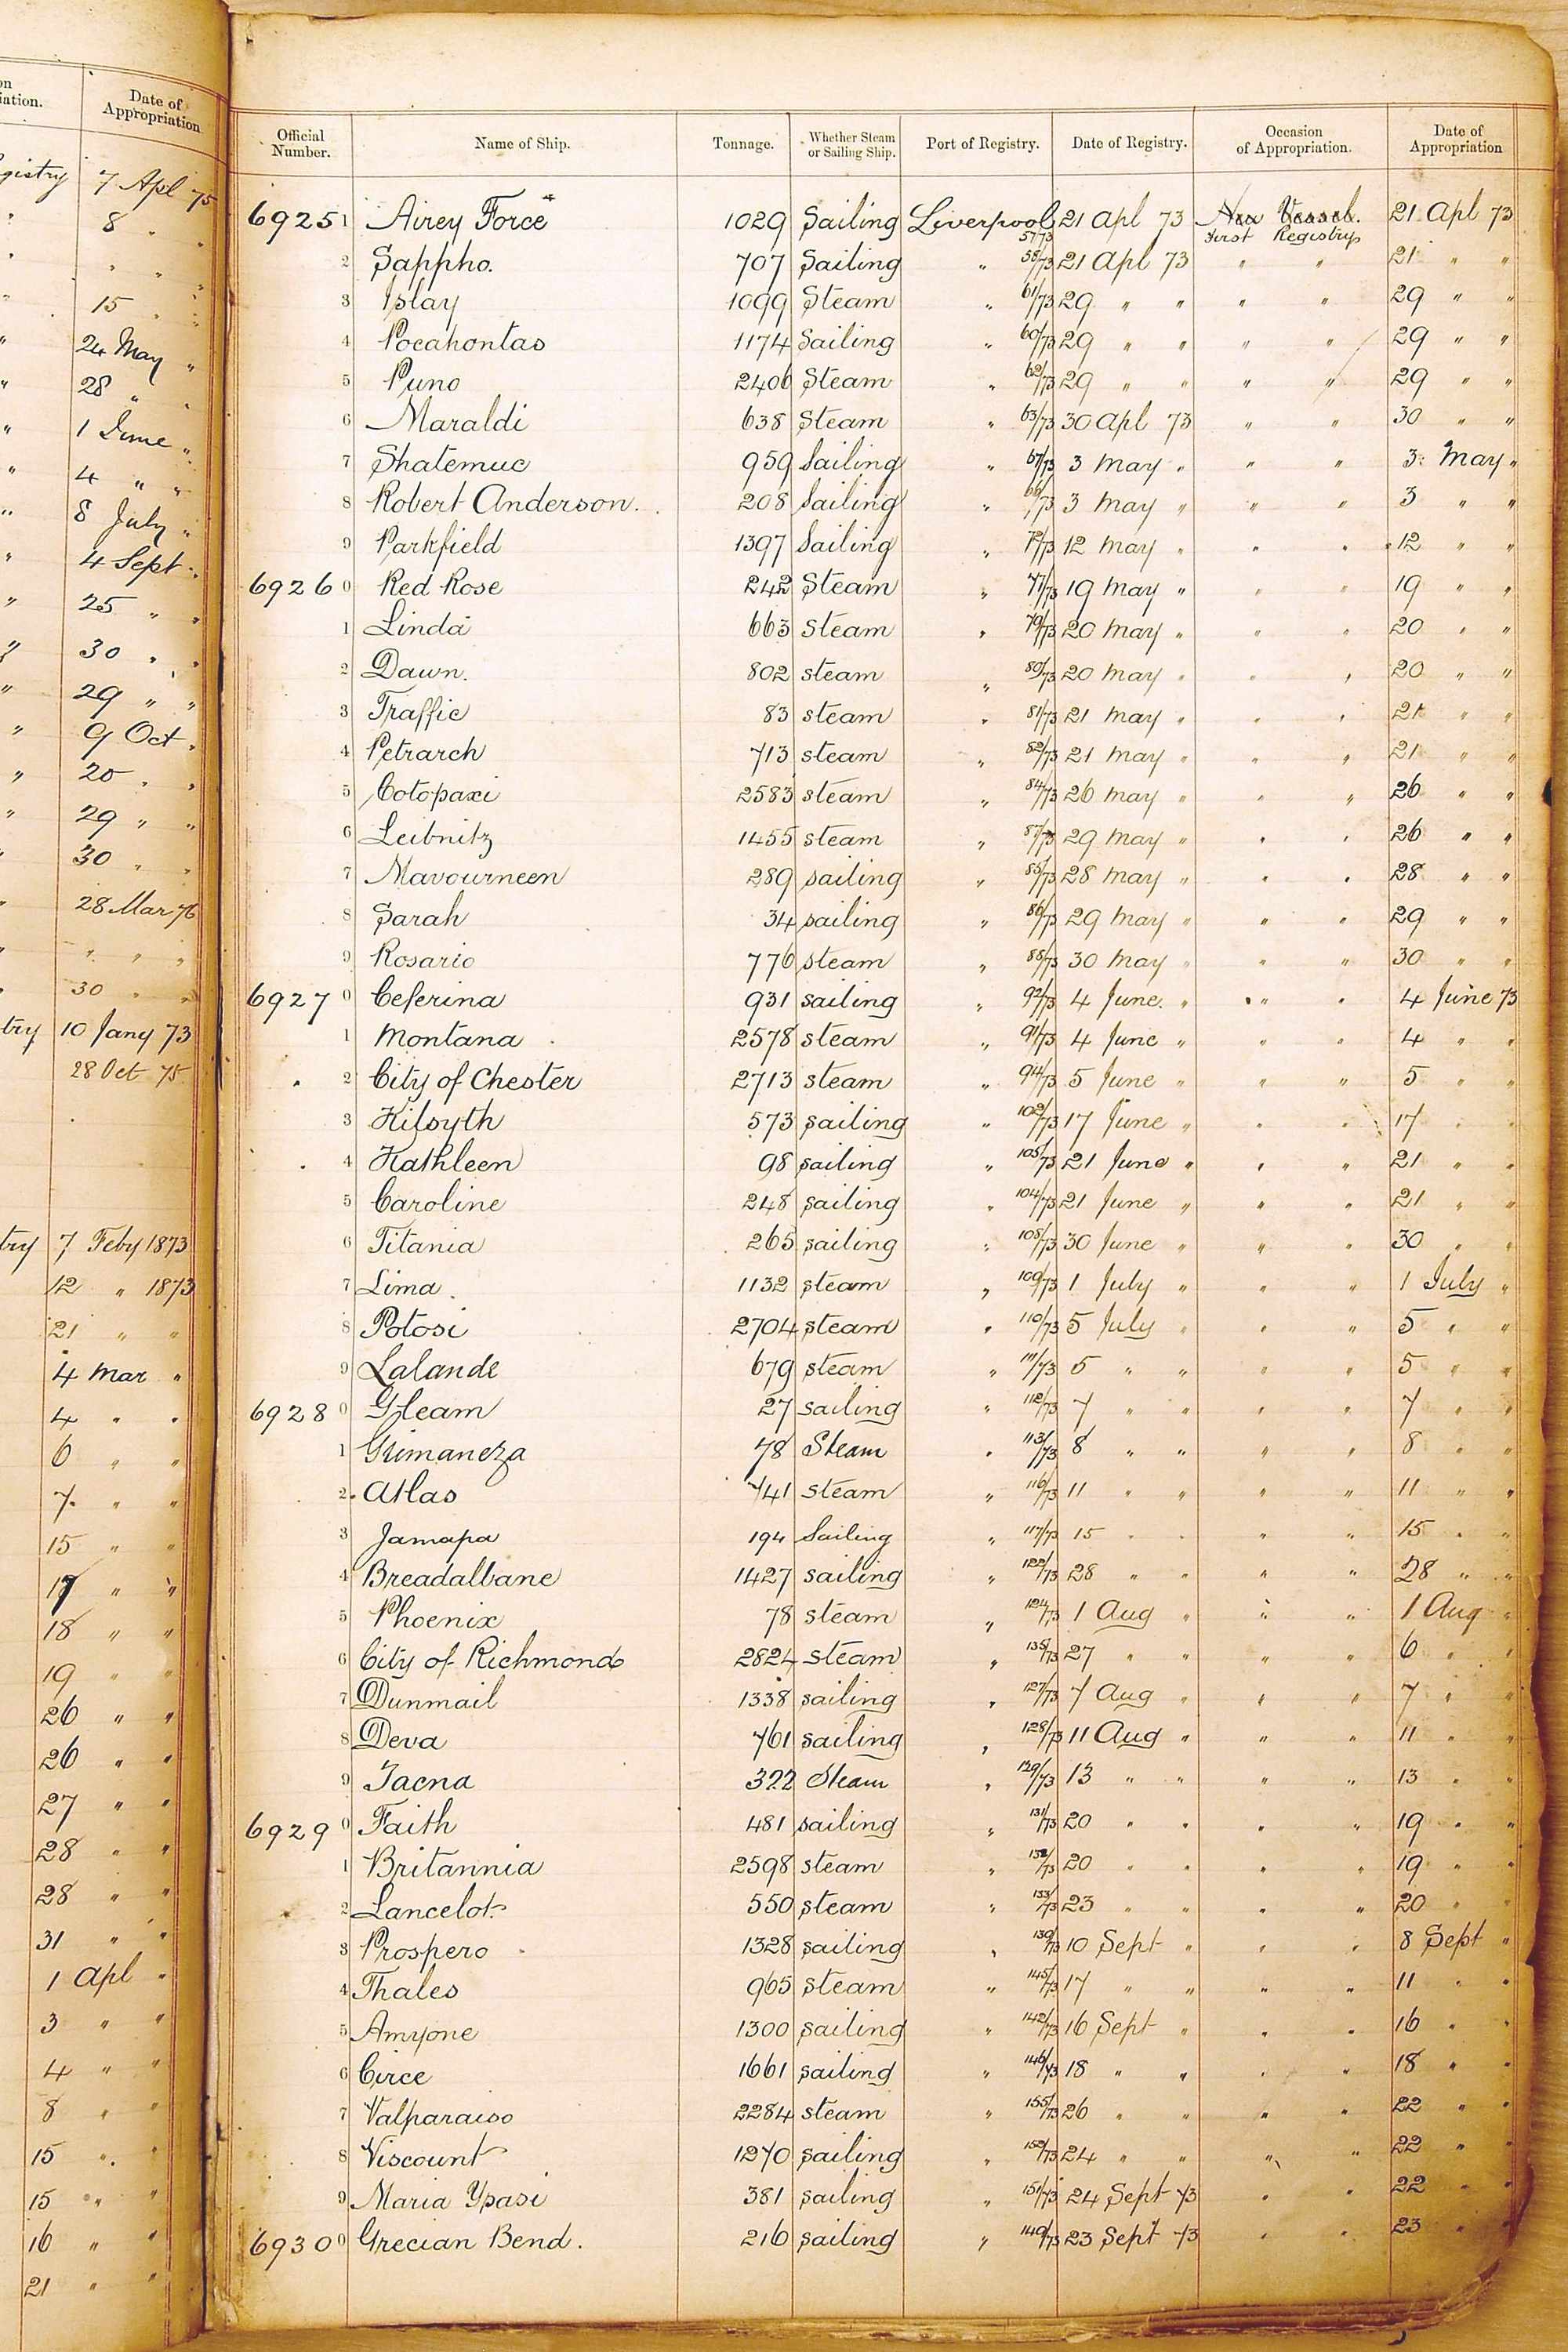 on
iation.
Date of
Appropriation
gistry 7 Apl 75
" 8 " "
" " " "
" 15 " "
" 24 May "
" 28 " "
" 1 June "
" 4 " "
" 8 July "
" 4 Sept "
" 25 " "
" 30 " "
" 29 " "
" 9 Oct "
" 20 " "
" 29 " "
" 30 " "
" 28 Mar 76
" " " "
" 30 " "
try 10 Jany 73
28 Oct 75
try 7 Feby 1873
12 " 1873
21 " "
4 Mar "
4 " "
6 " "
7 " "
15 " "
17 " "
18 " "
19 " "
26 " "
26 " "
27 " "
28 " "
28 " "
31 " "
1 Apl "
3 " "
4 " "
8 " "
15 " "
15 " "
16 " "
21 " "
Official Number. Name of Ship. Tonnage. Whether Steam or Sailing Ship. Port of Registry. Date of Registry. Occasion of Appropriation. Date of Appropriation
6925 1 Airey Force 1029 Sailing Liverpool 57/73 21 Apl 73 New Vessel. First Registry 21 Apl 73
2 Sappho. 707 Sailing " 58/73 21 Apl 73 " " 21 " "
3 Islay 1099 Steam " 61/73 29 " " " " 29 " "
4 Pocahontas 1174 Sailing " 60/73 29 " " " " 29 " "
5 Puno 2406 Steam " 62/73 29 " " " " 29 " "
6 Maraldi 638 Steam " 63/73 30 Apl 73 " " 30 " "
7 Shatemuc 959 Sailing " 67/73 3 May " " " 3 May "
8 Robert Anderson. 208 Sailing " 66/73 3 May " " " 3 " "
9 Parkfield 1397 Sailing " 72/73 12 May " " " 12 " "
6926 0 Red Rose 242 Steam " 77/73 19 May " " " 19 " "
1 Linda 663 Steam " 79/73 20 May " " " 20 " "
2 Dawn. 802 steam " 80/73 20 May " " " 20 " "
3 Traffic 83 steam " 81/73 21 May " " " 21 " "
4 Petrarch 713 steam " 82/73 21 May " " " 21 " "
5 Cotopaxi 2583 steam " 84/73 26 May " " " 26 " "
6 Leibnitz 1455 steam " 87/73 29 May " " " 26 " "
7 Mavourneen 289 sailing " 85/73 28 May " " " 28 " "
8 Sarah 34 sailing " 86/73 29 May " " " 29 " "
9 Rosario 776 steam " 88/73 30 May " " " 30 " "
6927 0 Ceferina 931 sailing " 92/73 4 June. " " " 4 June 73
1 Montana 2578 steam " 91/73 4 June " " " 4 " "
2 City of Chester 2713 steam " 94/73 5 June " " " 5 " "
3 Kilsyth 573 sailing " 102/73 17 June " " " 17 " "
4 Kathleen 98 sailing " 105/73 21 June " " " 21 " "
5 Caroline 248 sailing " 104/73 21 June " " " 21 " "
6 Titania 265 sailing " 108/73 30 June " " " 30 " "
7 Lima. 1132 steam " 109/73 1 July " " " 1 July "
8 Potosi 2704 steam " 110/73 5 July " " " 5 " "
9 Lalande 679 steam " 111/73 5 " " " " 5 " "
6928 0 Gleam 27 sailing " 112/73 7 " " " " 7 " "
1 Grimaneza 78 Steam " 113/73 8 " " " " 8 " "
2 Atlas 741 steam " 116/73 11 " " " " 11 " "
3 Jamapa 194 Sailing " 117/73 15 " " " " 15 " "
4 Breadalbane 1427 sailing " 122/73 28 " " " " 28 " "
5 Phoenix 78 steam " 124/73 1 Aug " " " 1 Aug "
6 City of Richmond 2824 steam " 135/73 27 " " " " 6 " "
7 Dunmail 1338 sailing " 127/73 7 Aug " " " 7 " "
8 Deva 761 sailing " 128/73 11 Aug " " " 11 " "
9 Tacna 322 Steam " 129/73 13 " " " " 13 " "
6929 0 Faith 481 sailing " 131/73 20 " " " " 19 " "
1 Britannia 2598 steam " 132/73 20 " " " " 19 " "
2 Lancelot 550 steam " 133/73 23 " " " " 20 " "
3 Prospero 1328 sailing " 139/73 10 Sept " " " 8 Sept "
4 Thales 965 steam " 145/73 17 " " " " 11 " "
5 Amyone 1300 sailing " 142/73 16 Sept " " " 16 " "
6 Circe 1661 sailing " 146/73 18 " " " " 18 " "
7 Valparaiso 2284 steam " 155/73 26 " " " " 22 " "
8 Viscount 1270 sailing " 152/73 24 " " " " 22 " "
9 Maria Ypasi 381 sailing " 151/73 24 Sept 73 " " 22 " "
6930 0 Grecian Bend. 216 sailing " 149/73 23 Sept 73 " " 23 " "